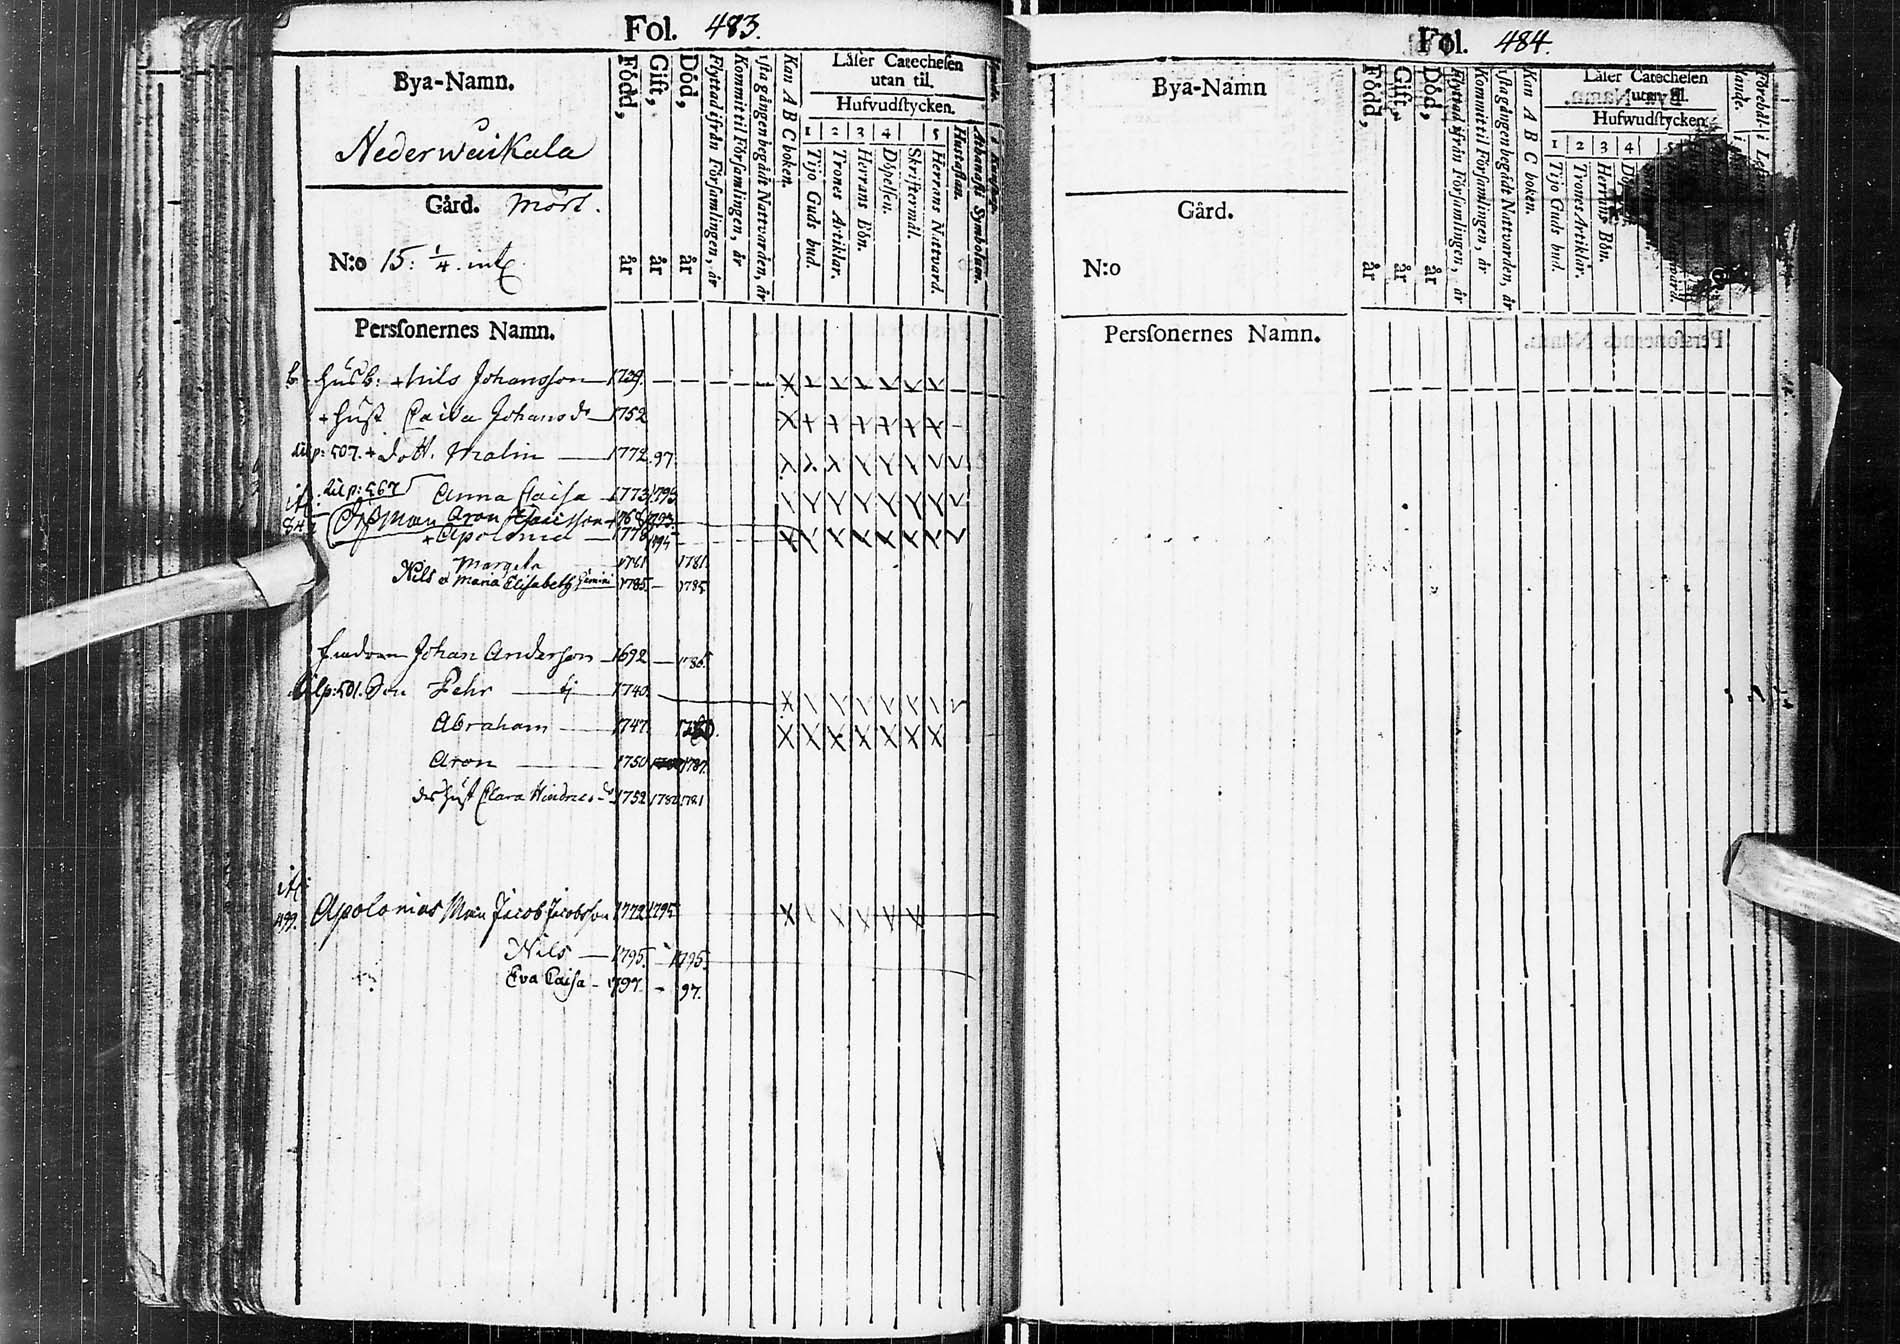 Fol. 483.
Bya-Namn.
Nederweikala
Gård. Mört.
N:o 15: 1/4. mtl.
Personernes Namn.
Född, år
Gift, år
Död, år
Flyttad ifrån Församlingen, år
Kommit til Församlingen, år
gången begådt Nattvarden, år
Kan A B C boken.
Läser Catechesen
utan til.
Hufvudstycken.
1 2 3 4 5
Tijo Guds bud.
Trones Artiklar.
Herrans Bön.
Döpelsen.
Skriftermål.
Herrans Nattvard.
Hustaflan.
Athanasii Symbolum.
b Husb: + Nils Johansson 1729.
+ Hust Caisa Johansdr 1752
p: 507. + Dott. Malin 1772. 97.
p: 567 Anna Caisa 1773 1793
Aron 1768 1793.
+ Apolonia 1778 1794
Margeta 1781 1781.
Nils & Maria Elisabeth Gemini 1785 1785
Johan Anderson 1692 1786.
p: 501. Son Pehr 1740.
Abraham 1747.
Aron 1750 1787.
des Hust Clara Hindricsdr 1752 1780 1781
499. Apolonias Man Jacob Jacobsson 1772 1795
Nils 1795. 1795.
Eva Caisa 1797. 97.
Fol. 484.
Bya-Namn
Gård.
N:o
Personernes Namn.
Född, år
Gift, år
Död, år
Flyttad ifrån Församlingen, år
Kommit til Församlingen, år
gången begådt Nattvarden, år
Kan A B C boken.
Läser Catechesen
utan til.
Hufwudstycken
1 2 3 4 5
Tijo Guds bud.
Trones Artiklar.
Herrans Bön.